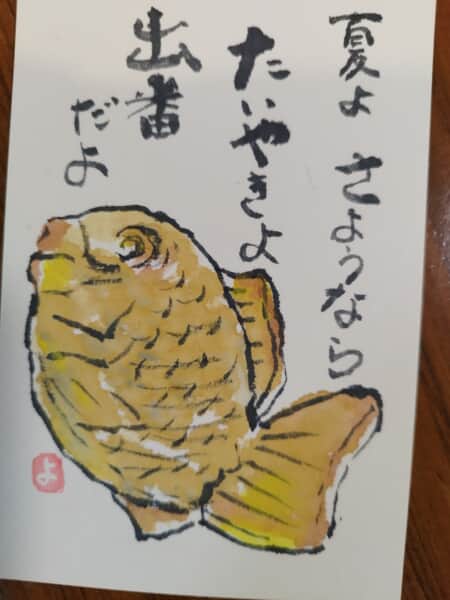 夏よ さようなら
たいやきよ
出番
だよ
よ